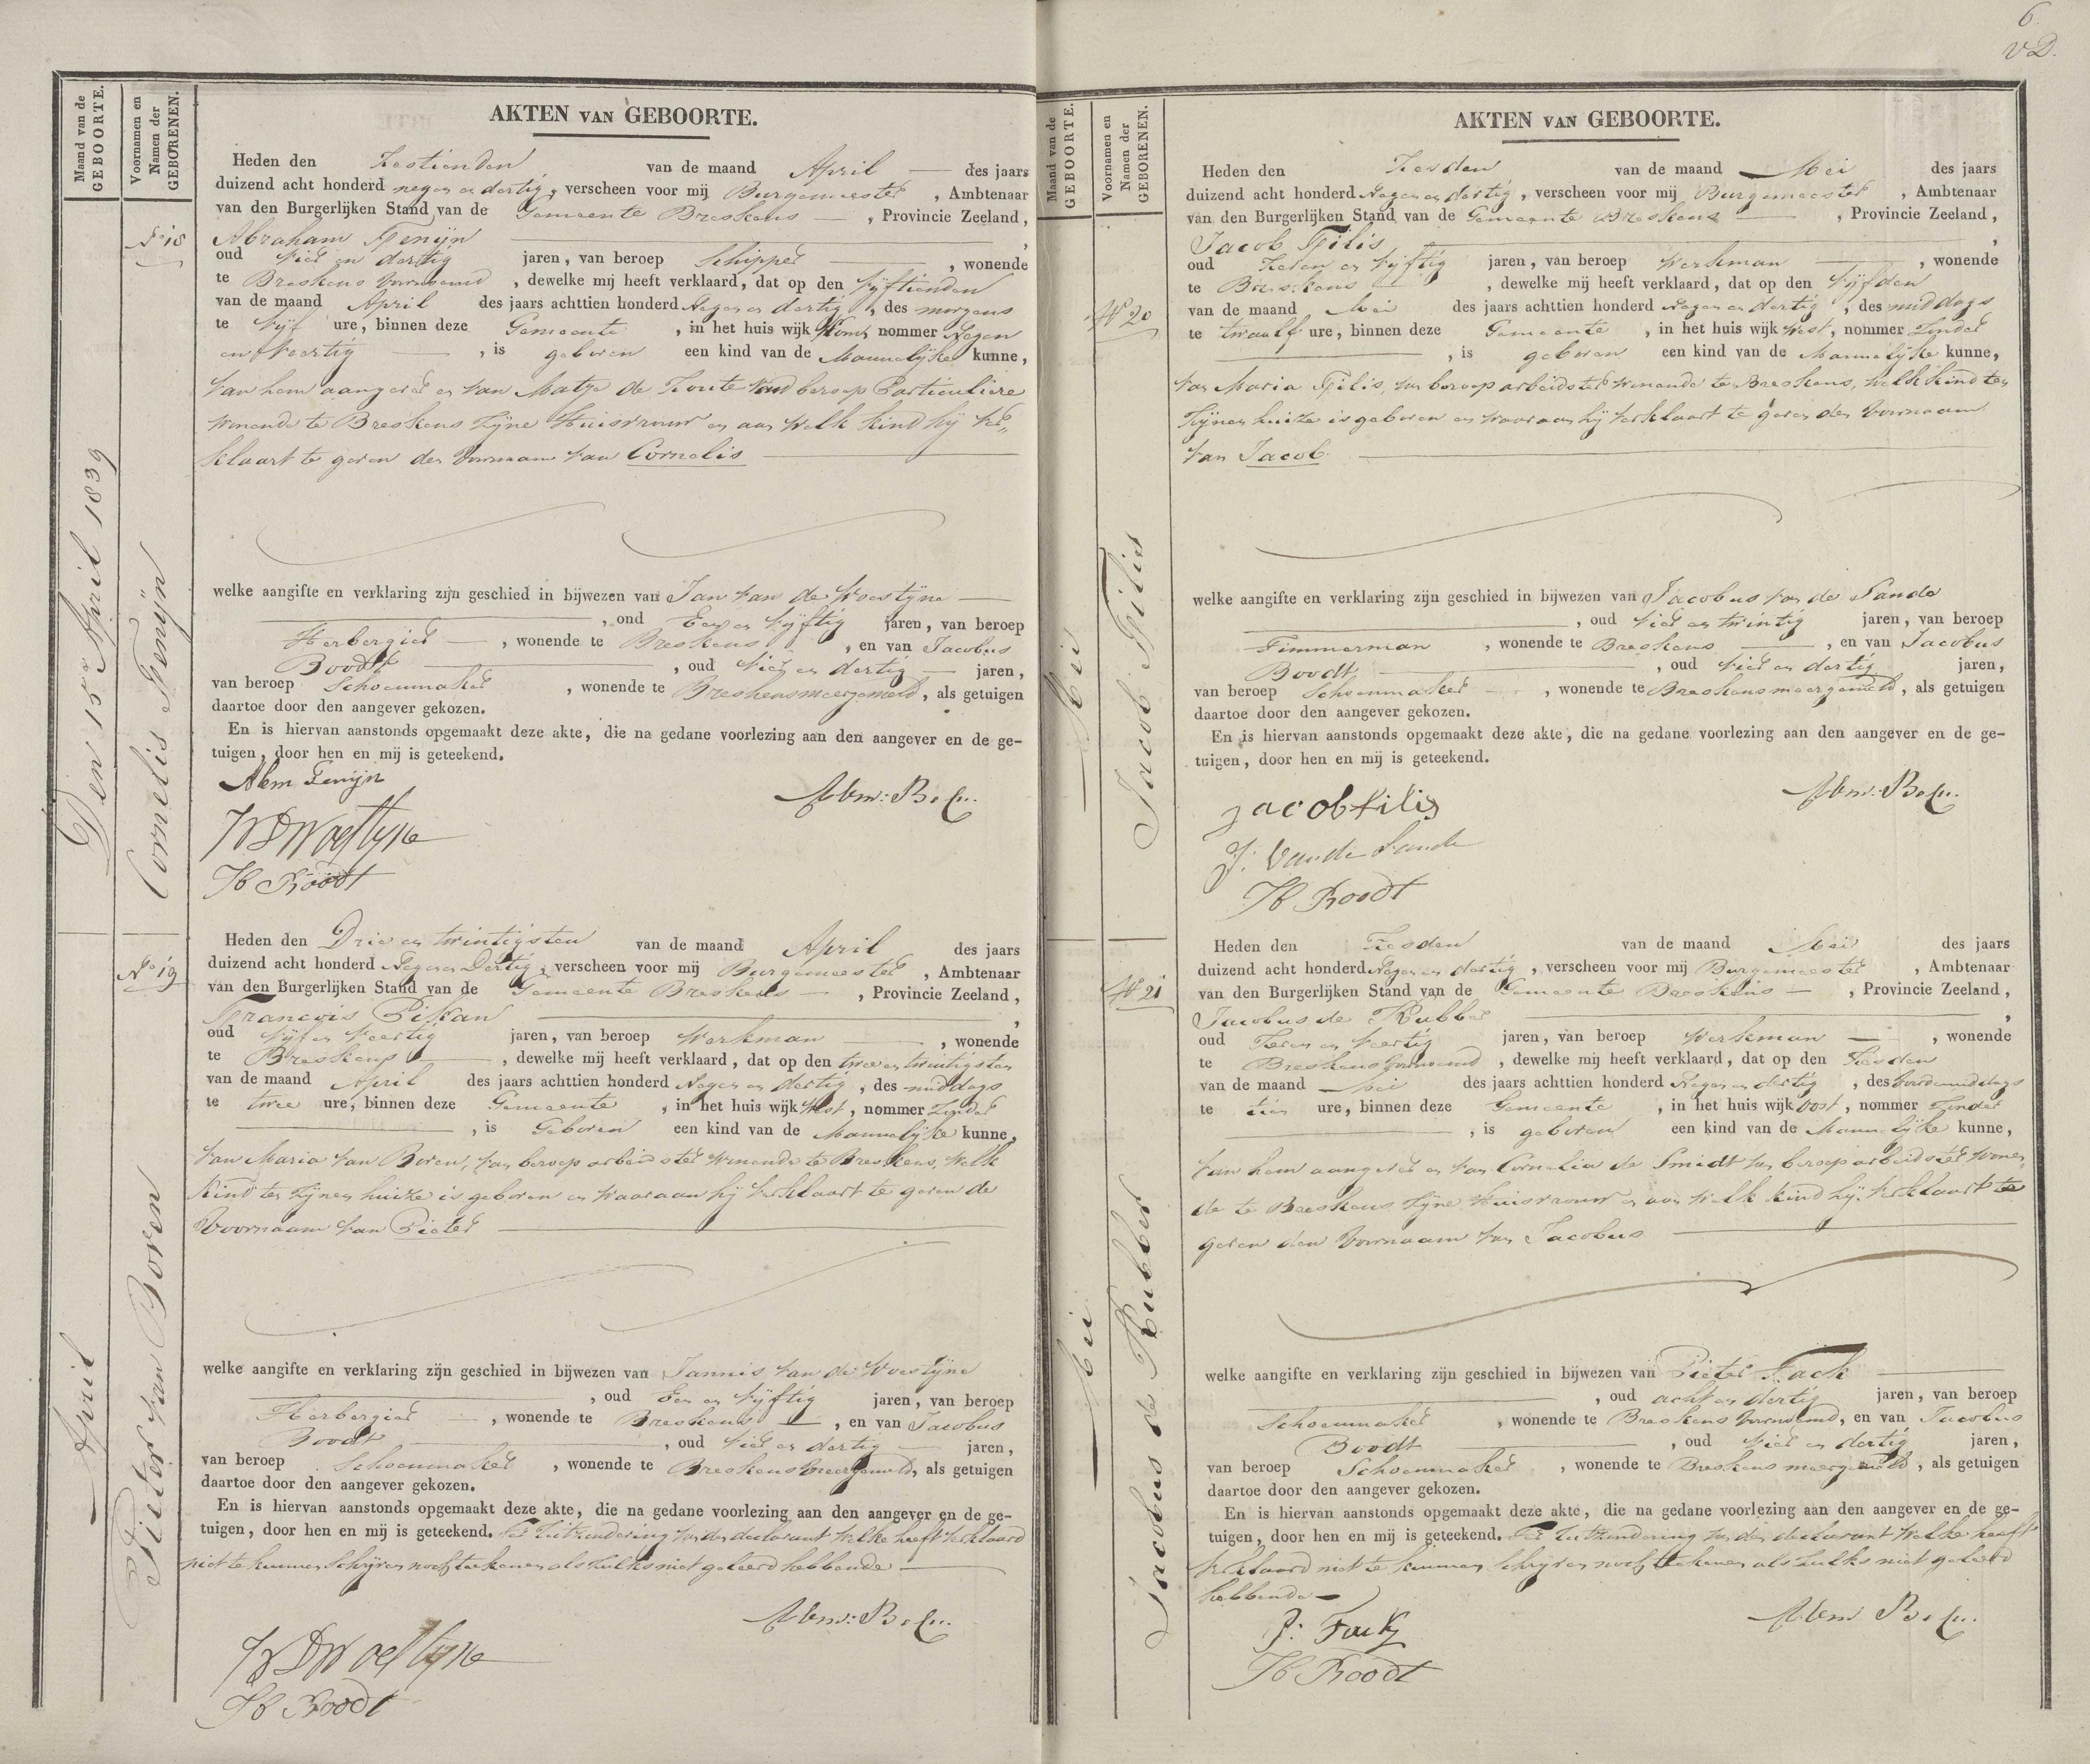 6.
v D.
Maand van de
GEBOORTE.
Voornamen en
Namen der
GEBORENEN.
AKTEN VAN GEBOORTE.
No 18
Den 15en April 1839
Cornelis Tenijn
Heden den Zestienden van de maand April des jaars
duizend acht honderd negen en dertig, verscheen voor mij Burgemeester, Ambtenaar
van den Burgerlijken Stand van de Gemeente Breskens, Provincie Zeeland,
Abraham Tenijn,
oud vier en dertig jaren, van beroep Schipper, wonende
te Breskens voornoemd, dewelke mij heeft verklaard, dat op den vijftienden
van de maand April des jaars achttien honderd Negen en dertig, des morgens
te vijf ure, binnen deze Gemeente, in het huis wijk Kom, nommer Negen
en veertig, is geboren een kind van de Mannelijke kunne,
van hem aangever en van Matje de Zoute van beroep Particuliere
wonende te Breskens zijne Huisvrouw en aan welk kind hij ver„
klaart te geven den voornaam van Cornelis
welke aangifte en verklaring zijn geschied in bijwezen van Jan van de Woestijne
, oud Een en vijftig jaren, van beroep
Herbergier, wonende te Breskens, en van Jacobus
Boodt, oud vier en dertig jaren,
van beroep Schoenmaker, wonende te Breskens meergemeld, als getuigen
daartoe door den aangever gekozen.
En is hiervan aanstonds opgemaakt deze akte, die na gedane voorlezing aan den aangever en de ge-
tuigen, door hen en mij is geteekend.
Abm Tenijn
Abm:
JVDWoestyne
JB Boodt
No 19
April
Pieter van Boven
Heden den Drie en twintigsten van de maand April des jaars
duizend acht honderd Negen en Dertig, verscheen voor mij Burgemeester, Ambtenaar
van den Burgerlijken Stand van de Gemeente Breskens, Provincie Zeeland,
Francois Pikan,
oud vijf en veertig jaren, van beroep Werkman, wonende
te Breskens, dewelke mij heeft verklaard, dat op den twee en twintigsten
van de maand April des jaars achttien honderd Negen en dertig, des middags
te twee ure, binnen deze Gemeente, in het huis wijk West, nommer Zonder
, is Geboren een kind van de Mannelijke kunne,
van Maria van Boven, van beroep arbeidster wonende te Breskens, welk
kind ten zijnen huize is geboren en waaraan hij verklaart te geven de
Voornaam van Pieter
welke aangifte en verklaring zijn geschied in bijwezen van Jannis van de Woestijne
, oud Een en vijftig jaren, van beroep
Herbergier, wonende te Breskens, en van Jacobus
Boodt, oud vier en dertig jaren,
van beroep Schoenmaker, wonende te Breskens meergemeld, als getuigen
daartoe door den aangever gekozen.
En is hiervan aanstonds opgemaakt deze akte, die na gedane voorlezing aan den aangever en de ge-
tuigen, door hen en mij is geteekend. Ter uitzondering van den declarant welke heeft verklaard
niet te kunnen schrijven noch teekenen als zulks niet geleerd hebbende
Abm:
JVDWoestyne
JB Boodt
Maand van de
GEBOORTE.
Voornamen en
Namen der
GEBORENEN.
AKTEN VAN GEBOORTE.
No 20
Mei
Jacob Filis
Heden den Zesden van de maand Mei des jaars
duizend acht honderd Negen en dertig, verscheen voor mij Burgemeester, Ambtenaar
van den Burgerlijken Stand van de Gemeente Breskens, Provincie Zeeland,
Jacob Filis,
oud Zeven en vijftig jaren, van beroep Werkman, wonende
te Breskens, dewelke mij heeft verklaard, dat op den Vijfden
van de maand Mei des jaars achttien honderd Negen en dertig, des middags
te twaalf ure, binnen deze Gemeente, in het huis wijk West, nommer Zonder
, is geboren een kind van de Mannelijke kunne,
van Maria Filis, van beroep arbeidster wonende te Breskens, welk kind ten
Zijnen huize is geboren en waaraan hij verklaart te geven den Voornaam
van Jacob.
welke aangifte en verklaring zijn geschied in bijwezen van Jacobus van de Sande
, oud vier en twintig jaren, van beroep
Timmerman, wonende te Breskens, en van Jacobus
Boodt, oud vier en dertig jaren,
van beroep Schoenmaker, wonende te Breskens meergemeld, als getuigen
daartoe door den aangever gekozen.
En is hiervan aanstonds opgemaakt deze akte, die na gedane voorlezing aan den aangever en de ge-
tuigen, door hen en mij is geteekend.
Jacob filis
Abm:
J: Van de Sande
JB Boodt
No 21
Mei
Jacobus de Rubber
Heden den Zesden van de maand Mei des jaars
duizend acht honderd Negen en dertig, verscheen voor mij Burgemeester, Ambtenaar
van den Burgerlijken Stand van de Gemeente Breskens, Provincie Zeeland,
Jacobus de Rubber,
oud Zeven en veertig jaren, van beroep Werkman, wonende
te Breskens voornoemd, dewelke mij heeft verklaard, dat op den Zesden
van de maand Mei des jaars achttien honderd Negen en dertig, des voordemiddags
te tien ure, binnen deze Gemeente, in het huis wijk Oost, nommer Zonder
, is geboren een kind van de Mannelijke kunne,
van hem aangever en van Cornelia de Smidt van beroep arbeidster wonen„
de te Breskens zijne Huisvrouw en aan welk kind hij verklaart te
geven den Voornaam van Jacobus
welke aangifte en verklaring zijn geschied in bijwezen van Pieter Fack
, oud acht en dertig jaren, van beroep
Schoenmaker, wonende te Breskens voornoemd, en van Jacobus
Boodt, oud vier en dertig jaren,
van beroep Schoenmaker, wonende te Breskens meergemeld, als getuigen
daartoe door den aangever gekozen.
En is hiervan aanstonds opgemaakt deze akte, die na gedane voorlezing aan den aangever en de ge-
tuigen, door hen en mij is geteekend. Ter uitzondering van den declarant welke heeft
verklaard niet te kunnen schrijven noch teekenen als zulks niet geleerd
hebbende
Abm
P: Fack
JB Boodt